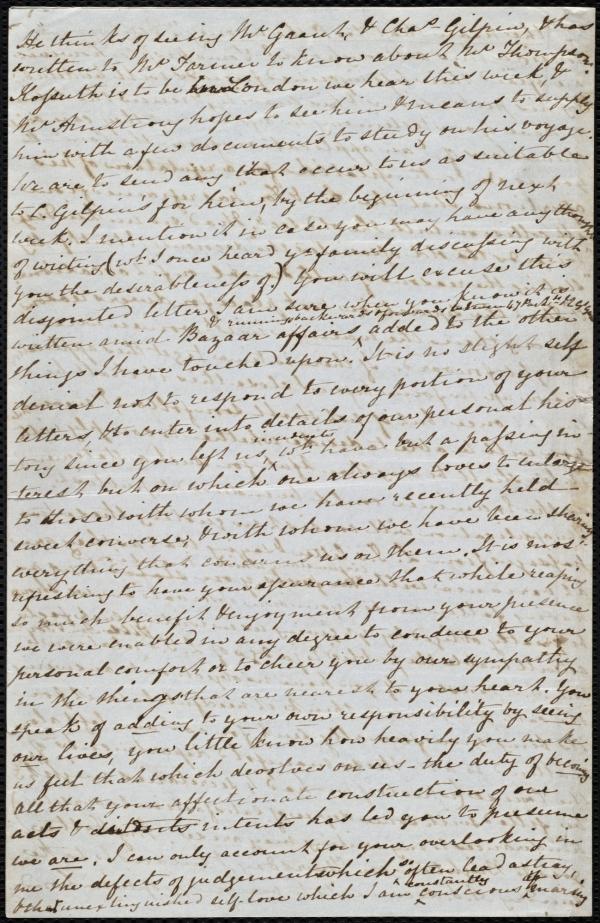 He thinks of seeing Mr Gaunt, & Chas. Gilpin, & has
written to Mr Farmer to know about Mr Thompson.
Kossuth is to be in London we hear this week &
Mr Armstrong hopes to see him & means to supply
him with a few documents to study on his voyage.
We are to send any that occur to us as suitable
to C. Gilpin's for him, by the beginning of next
week. I mention it in case you may have any thought
of writing (wh. I once heard yr family discussing with
you the desirableness of.) You will excuse this
disjointed letter I am sure when you know it is
& running backwards & forwards between 47 Pk St &
written amid Bazaar affairs added to the other
things I have touched upon. It is no slight self
denial not to respond to every portion of your
letters, & to enter into details of our personal his
tory since you left us,
incidents
wh. have but a passing in-
terest but on which one always loves to enlarge
to those with whom we have recently held
sweet converse, & with whom we have been sharing
everything that concerns us or them. It is most
refreshing to have your assurance that while reaping
so much benefit & enjoyment from your presence
we were enabled in any degree to conduce to your
personal comfort or to cheer you by our sympathy
in the things that are nearest to your heart. You
speak of adding to your own responsibility by seeing
our lives, you little know how heavily you make
us feel that which devolves on us - the duty of becoming
all that your affectionate construction of our
acts & intents has led you to presume
we are. I can only account for your overlooking in
me the defects of judgement which so often lead astray
& that unextinguished self-love which I am constantly conscious of marring